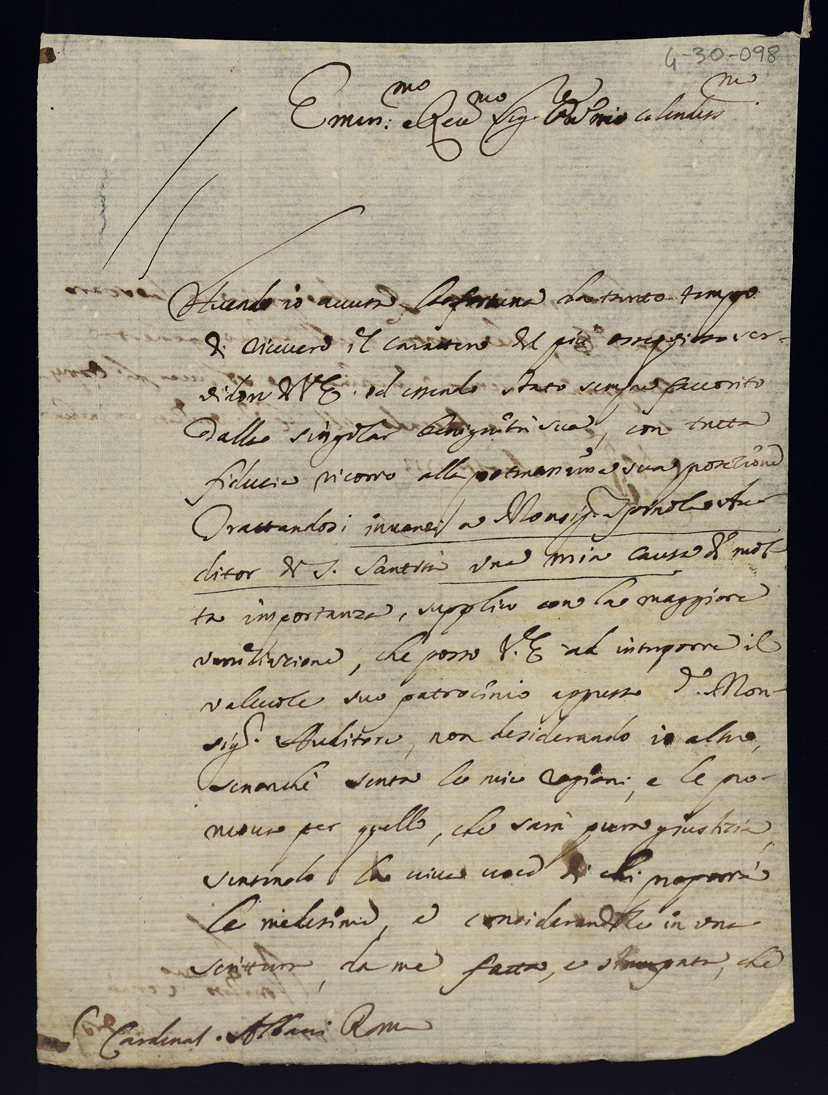 4-30-098
Emin: e Reu.mo Sig.re Pad.ne mio Colendiss.mo
Avendo io avuta la fortuna da tanto tempo
di ricevere il carattere del più ossequioso ser-
vidore di V. E. ed essendo stato sempre favorito
dalla singolar benignità sua, con tutta
fiducia ricorro alla sua protezione
Trattandosi innanzi a Monsig.r Spinola Au-
ditor di S. Santità una mia causa di mol-
ta importanza, supplico con la maggiore
umiliazione, che posso V. E. ad interporre il
valevole suo patrocinio appresso d.o Mon-
sig.r Auditore, non desiderando io altro,
senonché senta le mie ragioni, e le pro-
mova per quello, che sarà pura giustizia,
sentendo la viva voce di chi proporrà
le medesime, e considerandole in una
scrittura, da me fatta, e stampata, che
Cardinal. Albani Roma